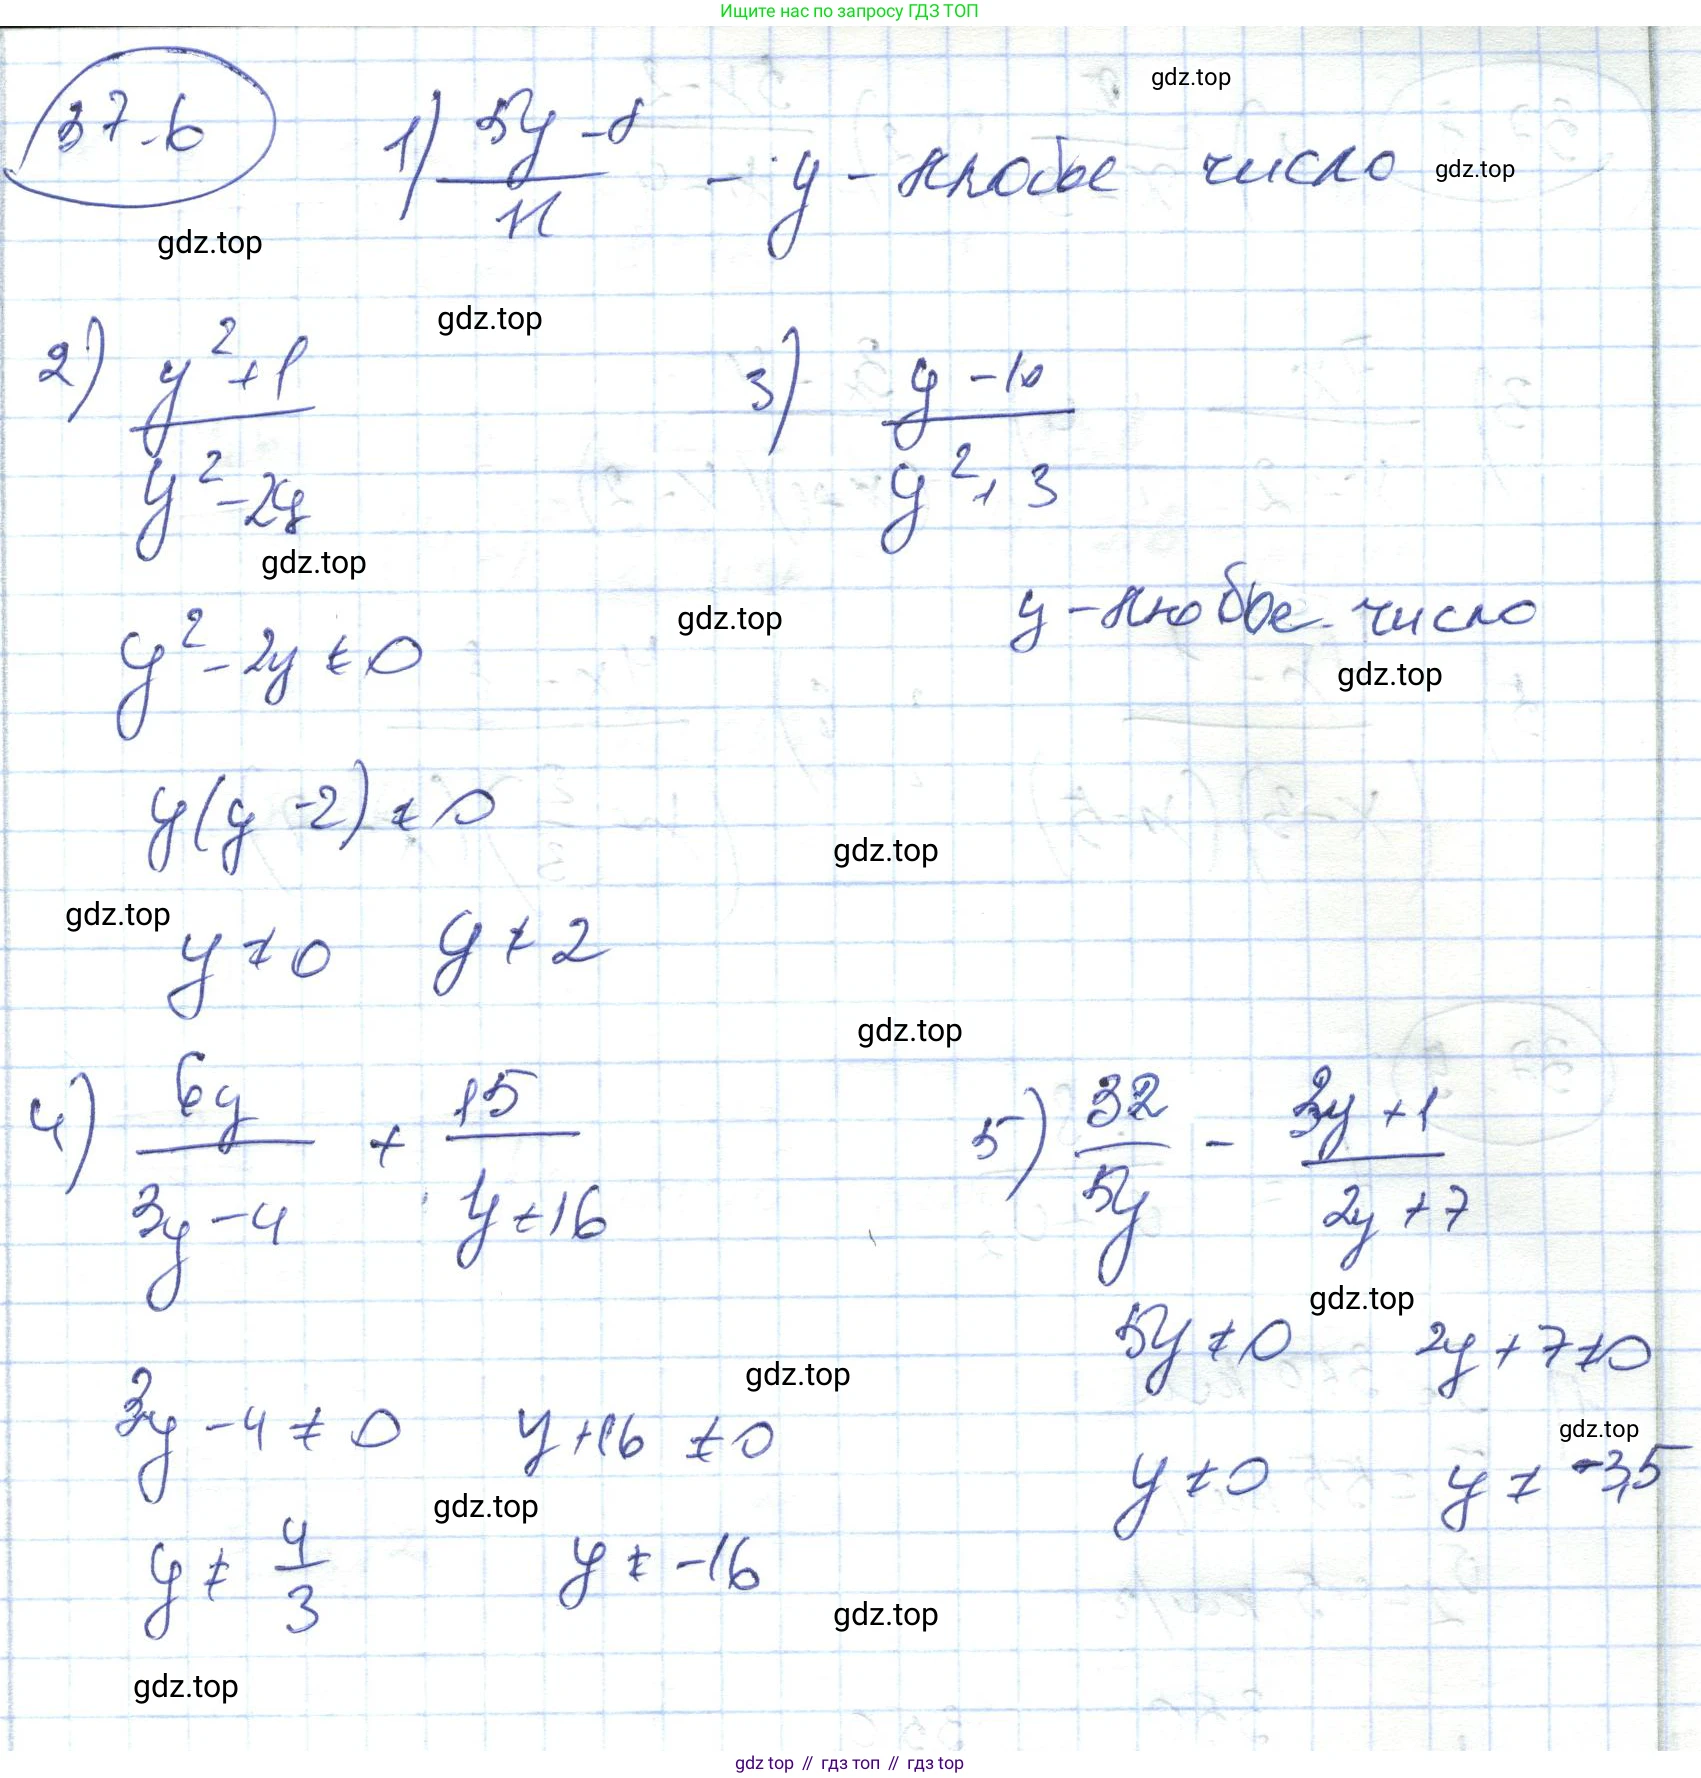 Ищите нас по запросу ГДЗ ТОП
37.6
1) (5y - 8)/11 - y - любое число
gdz.top
gdz.top
gdz.top
gdz.top
2) (y² + 1)/(y² - 2y)
3) (y - 10)/(y² + 3)
gdz.top
y² - 2y ≠ 0
gdz.top
y - любое число
gdz.top
y(y - 2) ≠ 0
gdz.top
gdz.top
y ≠ 0 y ≠ 2
gdz.top
4) 6y/(3y - 4) + 15/(y + 16)
5) 32/5y - (3y + 1)/(2y + 7)
gdz.top
5y ≠ 0 2y + 7 ≠ 0
gdz.top
3y - 4 ≠ 0 y + 16 ≠ 0
gdz.top
y ≠ 0 y ≠ -3,5
gdz.top
y ≠ 4/3 y ≠ -16
gdz.top
gdz.top
gdz top // гдз топ // гдз top